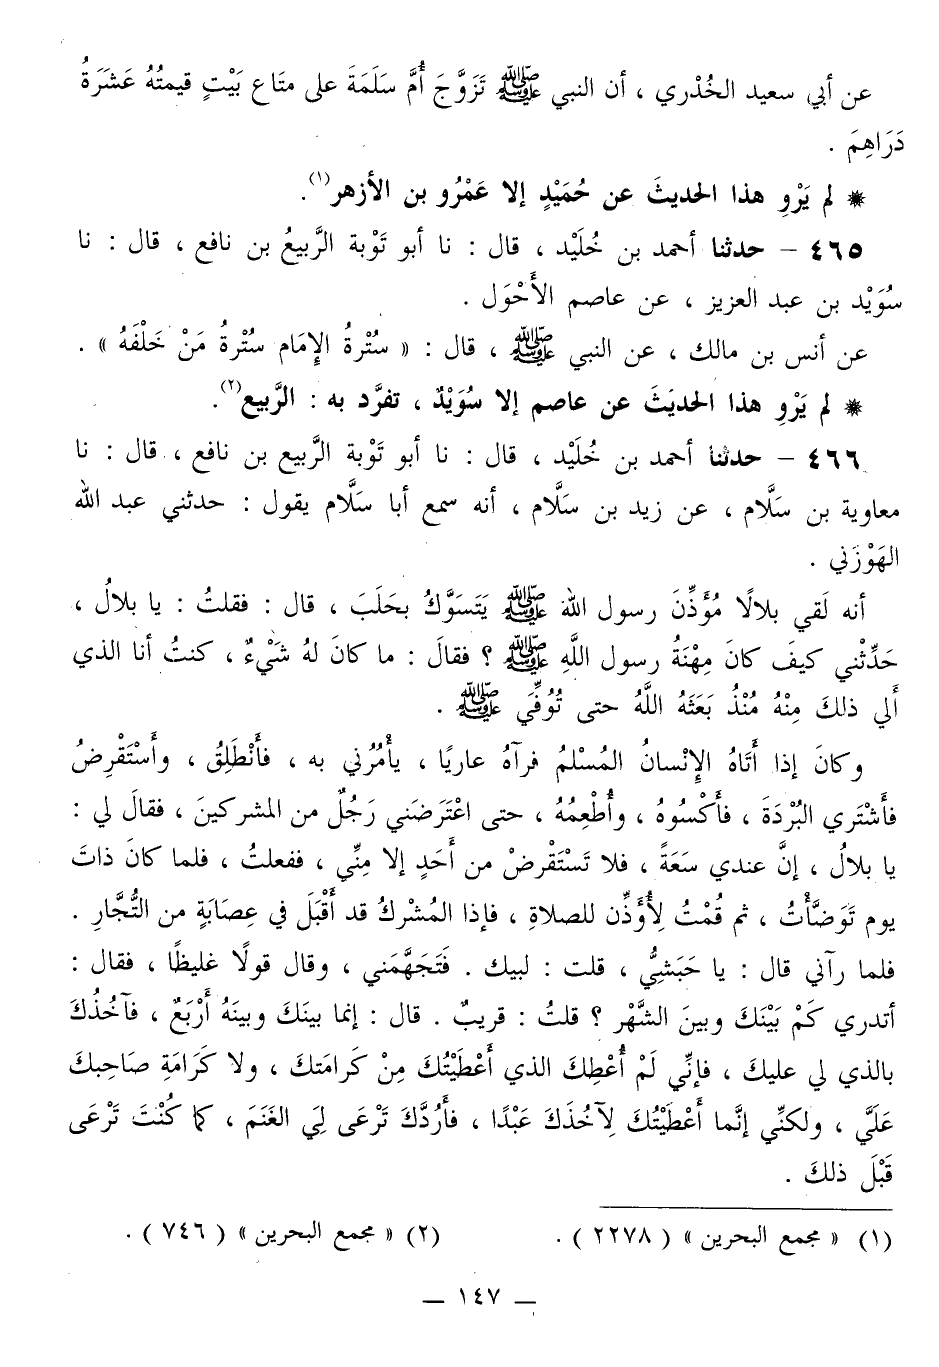 عن أبي سعيد الخُدْري ، أن النبي ﷺ تَزَوَّجَ أُمَّ سَلَمَةَ على متَاع بَيْتٍ قيمتُهُ عَشَرَةُ
دَرَاهِمَ .
* لم يَرْوِ هذا الحديثَ عن حُمَيْدٍ إلا عَمْرُو بن الأزهر(١).
٤٦٥ - حدثنا أحمد بن خُلَيْد ، قال : نا أبو تَوْبة الرَّبيعُ بن نافع ، قال : نا
سُوَيْد بن عبد العزيز ، عن عاصم الأَحْوَل .
عن أنس بن مالك ، عن النبي ﷺ ، قال : « سُتْرةُ الإِمَام سُتْرةُ مَنْ خَلْفَهُ » .
* لم يَرْوِ هذا الحديَثَ عن عاصم إلا سُوَيْدٌ ، تفرَّد به : الرَّبيع(٢).
٤٦٦ - حدثنا أحمد بن خُلَيْد ، قال : نا أبو تَوْبة الرَّبيع بن نافع ، قال : نا
معاوية بن سَلَّام ، عن زيد بن سَلَّام ، أنه سمع أبا سَلَّام يقول : حدثني عبد الله
الهَوْزَني .
أنه لَقي بلالًا مُؤَذِّنَ رسول الله ﷺ يَتَسَوَّكُ بحَلَبَ ، قال : فقلتُ : يا بلالُ ،
حَدِّثْني كيفَ كانَ مِهْنَةُ رسول اللَّهِ ﷺ ؟ فقالَ : ما كانَ لهُ شَيْءٌ ، كنتُ أنا الذي
أَلي ذلكَ مِنْهُ مُنْذُ بَعَثَهُ اللَّهُ حتى تُوُفِّيَ ﷺ .
وكانَ إذا أَتَاهُ الإِنْسانُ المُسْلمُ فرآهُ عاريًا ، يأْمُرُني به ، فَأَنْطَلِقُ ، وأَسْتَقْرِضُ
فأَشْتَري البُرْدَةَ ، فأَكْسُوهُ ، وأُطْعِمُهُ ، حتى اعْتَرَضَني رَجُلٌ من المشركينَ ، فقالَ لي :
يا بلالُ ، إنَّ عندي سَعَةً ، فلا تَسْتَقْرضْ من أَحَدٍ إلا مِنِّي ، ففعلتُ ، فلما كانَ ذاتَ
يوم تَوَضَّأْتُ ، ثم قُمْتُ لِأُوَذِّن للصلاةِ ، فإذا المُشْركُ قد أَقْبَلَ في عِصَابَةٍ من التُّجَّارِ .
فلما رآني قال : يا حَبَشِيُّ ، قلت : لبيك . فَتَجَهَّمَني ، وقال قولًا غليظًا ، فقال :
أتدري كَمْ بَيْنَكَ وبينَ الشَّهْر ؟ قلتُ : قريبٌ . قال : إنما بينَكَ وبينَهُ أَرْبَعٌ ، فآخُذُكَ
بالذي لي عليكَ ، فإنِّي لَمْ أُعْطِكَ الذي أَعْطَيْتُكَ مِنْ كَرَامَتكَ ، ولا كَرَامَةِ صَاحِبكَ
عَلَيَّ ، ولكنِّي إنَّما أَعْطَيْتُكَ لِآخُذَكَ عَبْدًا ، فأَرُدَّكَ تَرْعَى لِيَ الغَنَمَ ، كما كُنْتَ تَرْعَى
قَبْلَ ذلكَ .
(١) « مجمع البحرين » ( ٢٢٧٨ ) . (٢) « مجمع البحرين » ( ٧٤٦ ) .
– ١٤٧ –